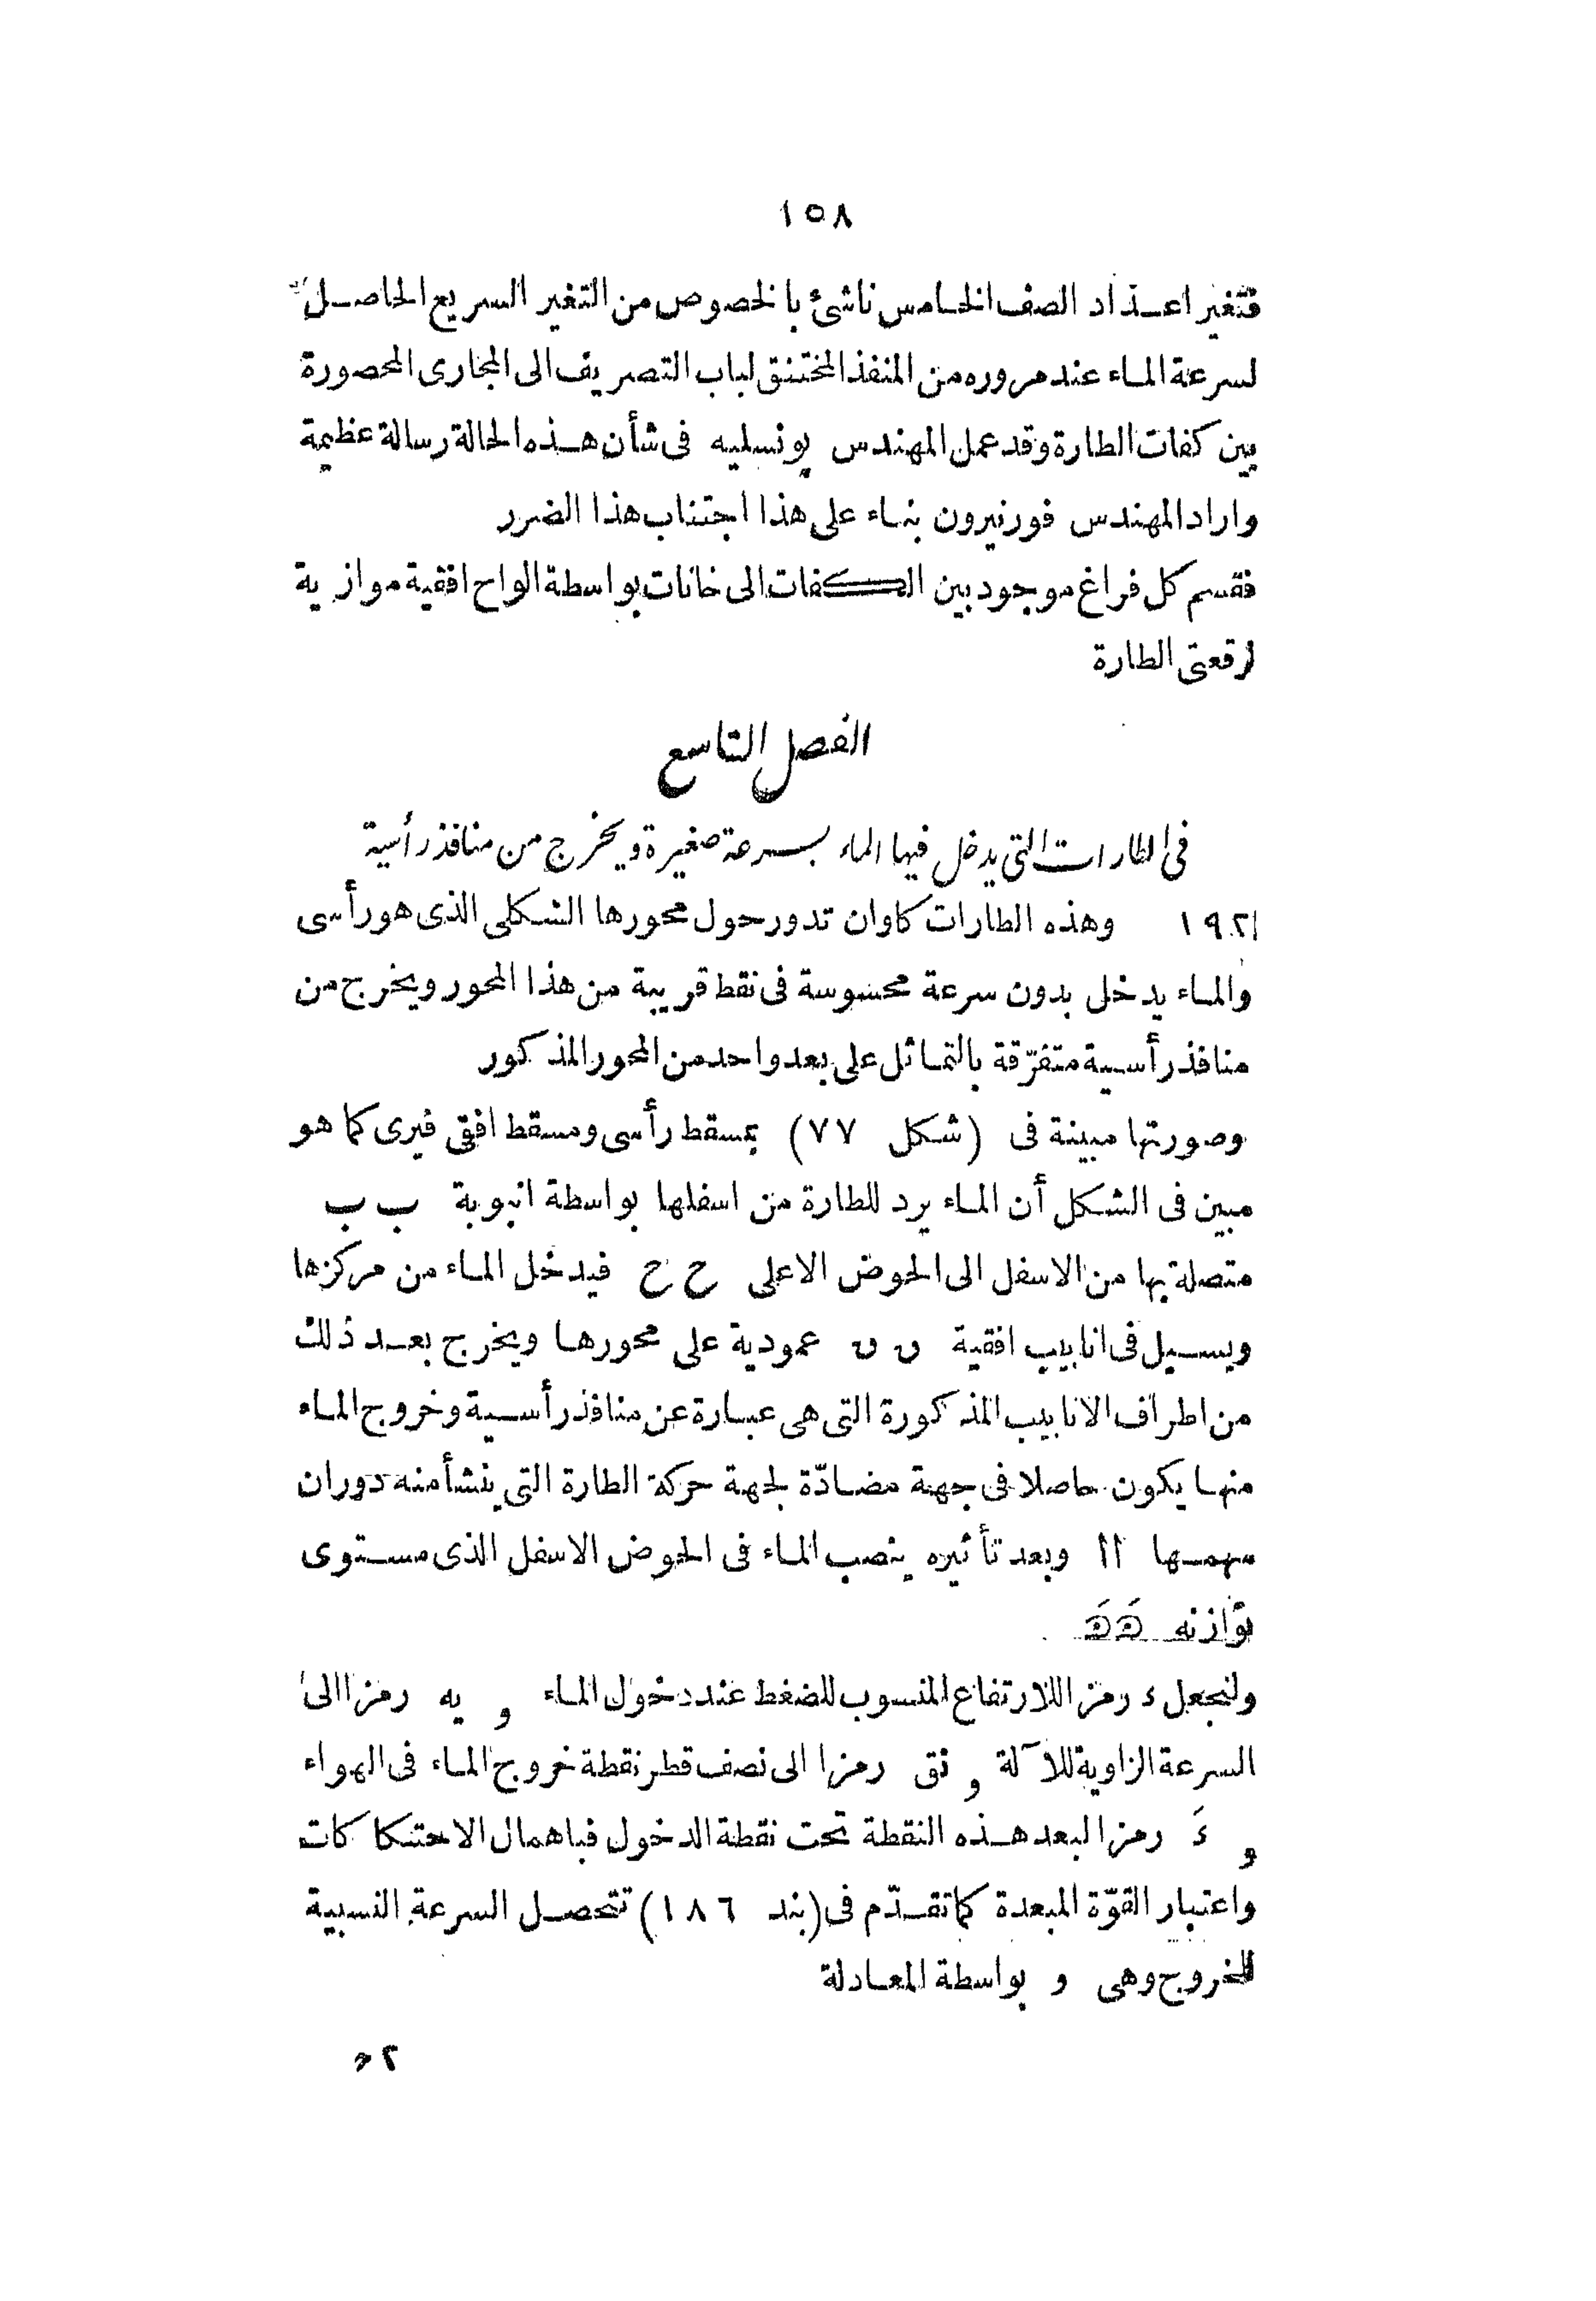 ١٥٨
فتغير اعداد الصف الخامس ناشئ بالخصوص من التغير السريع الحاصل
لسرعة الماء عند مروره من المنفذ المختنق لباب التصريف الى المجارى المحصورة
بين كفات الطارة وقد عمل المهندس پونسليه فى شأن هذه الحالة رسالة عظيمة
واراد المهندس فورنيرون بناء على هذا اجتناب هذا الضرر
فقسم كل فراغ موجود بين الكفات الى خانات بواسطة الواح افقية موازية
لرقعتى الطارة
الفصل التاسع
فى الطارات التى يدخل فيها الماء بسرعة صغيرة ويخرج من منافذ رأسية
١٩٢ وهذه الطارات كاوان تدور حول محورها الشكلى الذى هو رأسى
والماء يدخل بدون سرعة محسوسة فى نقط قريبة من هذا المحور ويخرج من
منافذ رأسية متفرّقة بالتماثل على بعد واحد من المحور المذكور
وصورتها مبينة فى (شكل ٧٧) بمسقط رأسى ومسقط افقى فيرى كما هو
مبين فى الشكل أن الماء يرد للطارة من اسفلها بواسطة انبوبة ب ب
متصلة بها من الاسفل الى الحوض الاعلى ح ح فيدخل الماء من مركزها
ويسيل فى انابيب افقية ں ں عمودية على محورها ويخرج بعد ذلك
من اطراف الانابيب المذكورة التى هى عبارة عن منافذ رأسية وخروج الماء
منها يكون حاصلا فى جهة مضادّة لجهة حركة الطارة التى ينشأ منه دوران
سهمها اا وبعد تأثيره ينصب الماء فى الحوض الاسفل الذى مستوى
توازنه هَ هَ
ولنجعل ء رمزا للارتفاع المنسوب للضغط عند دخول الماء و يه رمزا الى
السرعة الزاوية للآلة و نق رمزا الى نصف قطر نقطة خروج الماء فى الهواء
و ءَ رمزا لبعد هذه النقطة تحت نقطة الدخول فباهمال الاحتكاكات
واعتبار القوّة المبعدة كما تقدّم فى (بند ١٨٦) تتحصل السرعة النسبية
للخروج وهى و بواسطة المعادلة